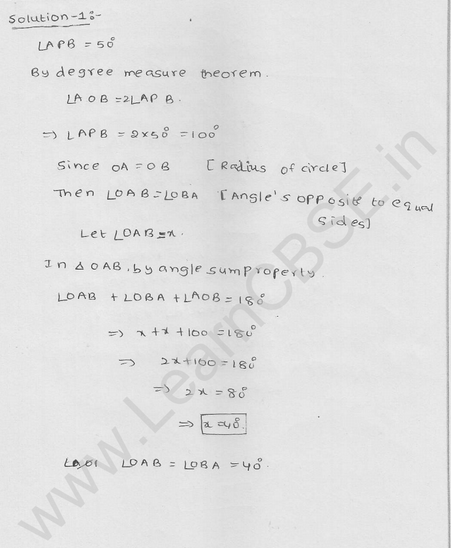 Solution-1:-
∠APB = 50°
By degree measure theorem.
∠AOB = 2∠APB.
⇒ ∠APB = 2×50° = 100°
Since OA = OB [Radius of circle]
Then ∠OAB = ∠OBA [Angle's opposite to equal
sides]
Let ∠OAB = x.
In Δ OAB, by angle sum property
∠OAB + ∠OBA + ∠AOB = 180°
⇒ x + x + 100 = 180°
⇒ 2x + 100 = 180°
⇒ 2x = 80°
⇒ x = 40°.
∠OAB = ∠OBA = 40°.
www.LearnCBSE.in